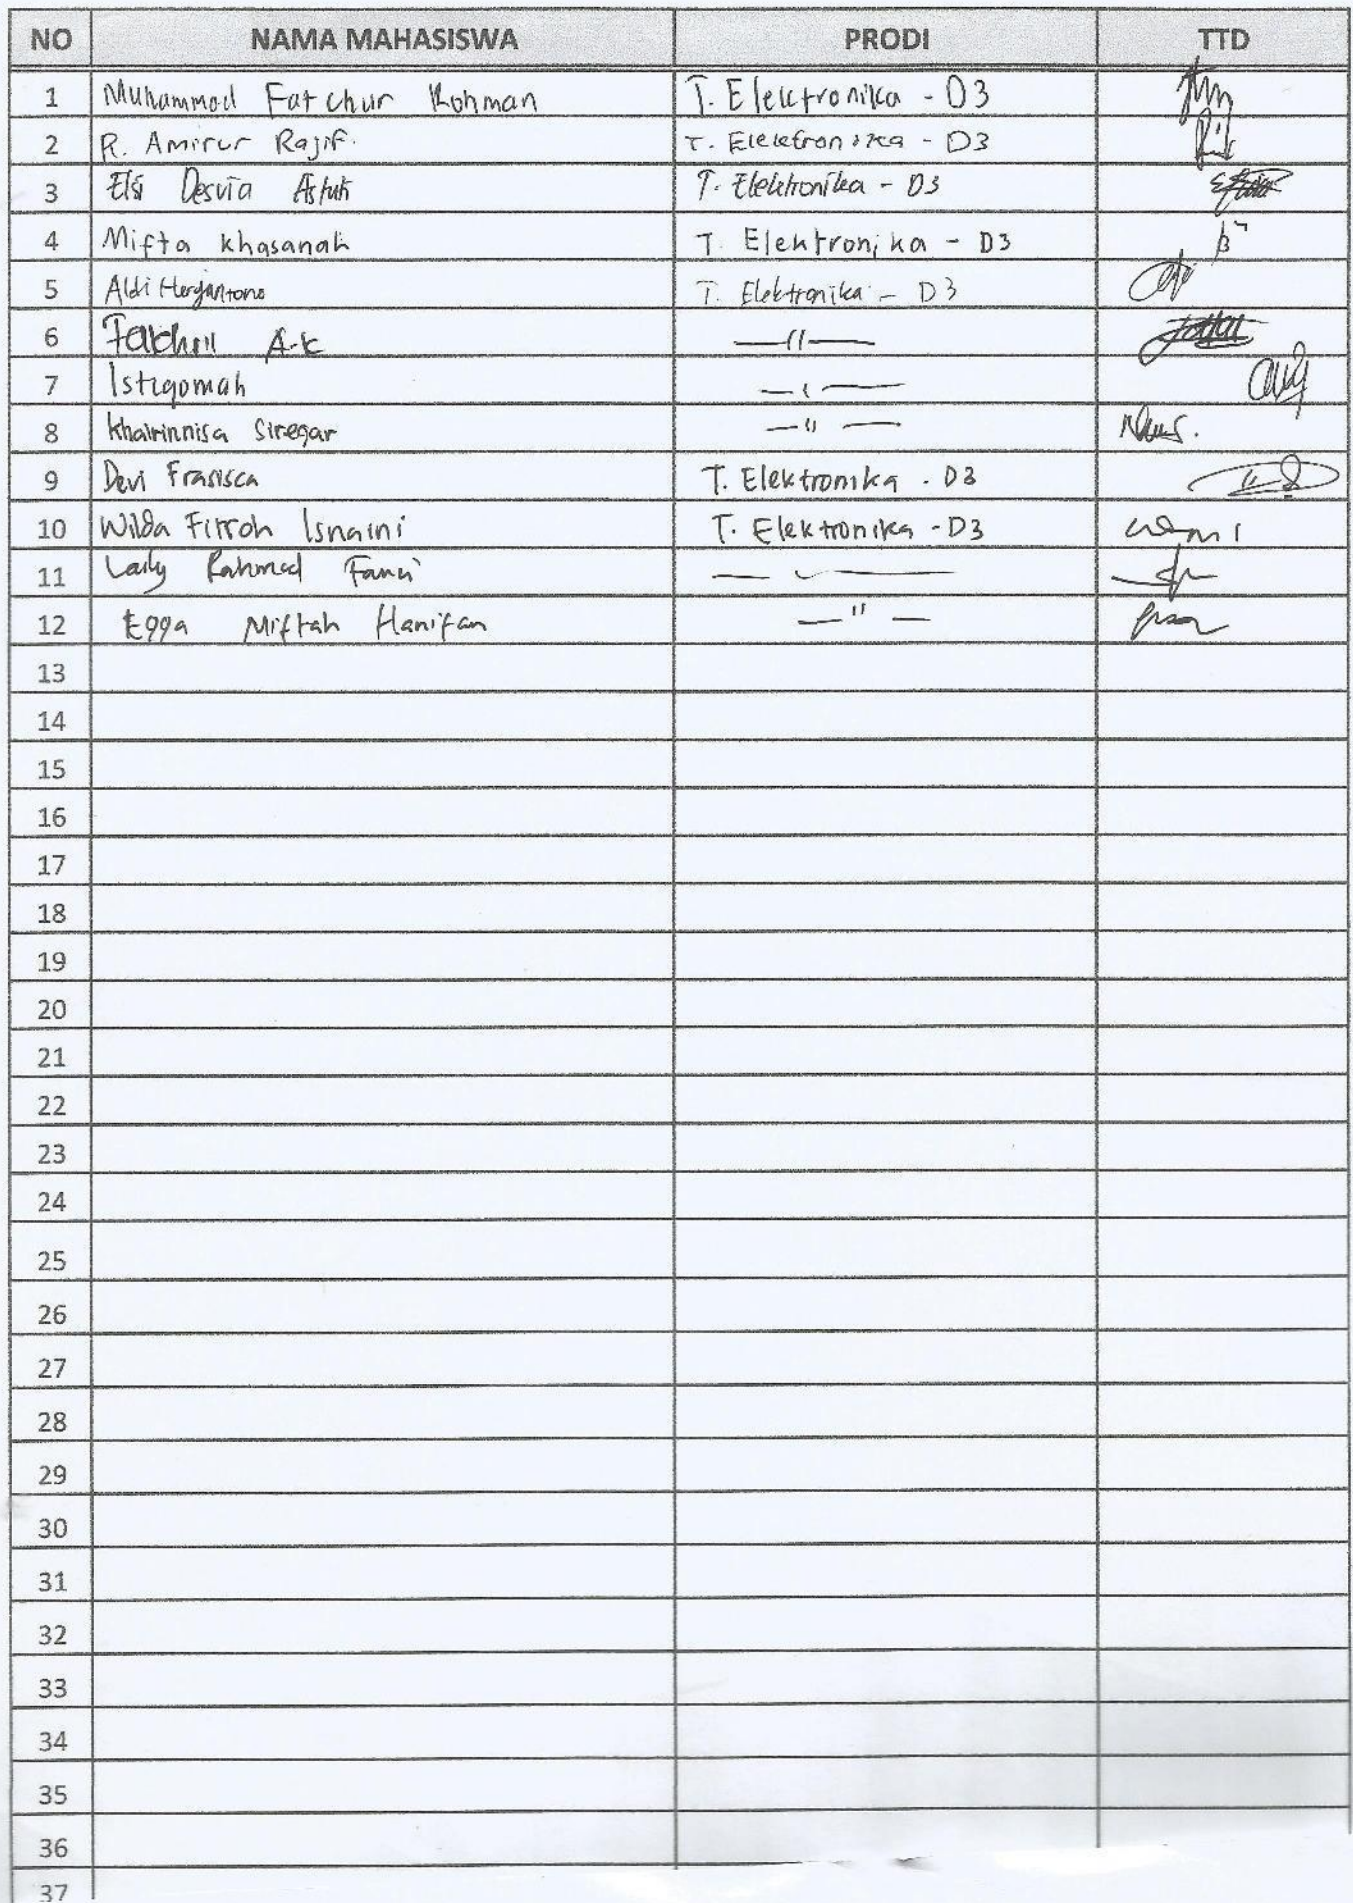 NO NAMA MAHASISWA PRODI TTD
1 Muhammad Fatchur Rohman T. Elektronika - D3
2 R. Amirur Rajif. T. Elektronika - D3
3 Elsi Desvia Astuti T. Elektronika - D3
4 Mifta Khasanah T. Elektronika - D3
5 Aldi T. Elektronika - D3
6 A.K —〃—
7 Istiqomah —〃—
8 Khairinnisa Siregar —〃—
9 Devi Frasisca T. Elektronika - D3
10 Wilda Fitroh Isnaini T. Elektronika - D3
11 Laily Rahmad
12 Egga Miftah Hanifan —〃—
13
14
15
16
17
18
19
20
21
22
23
24
25
26
27
28
29
30
31
32
33
34
35
36
37